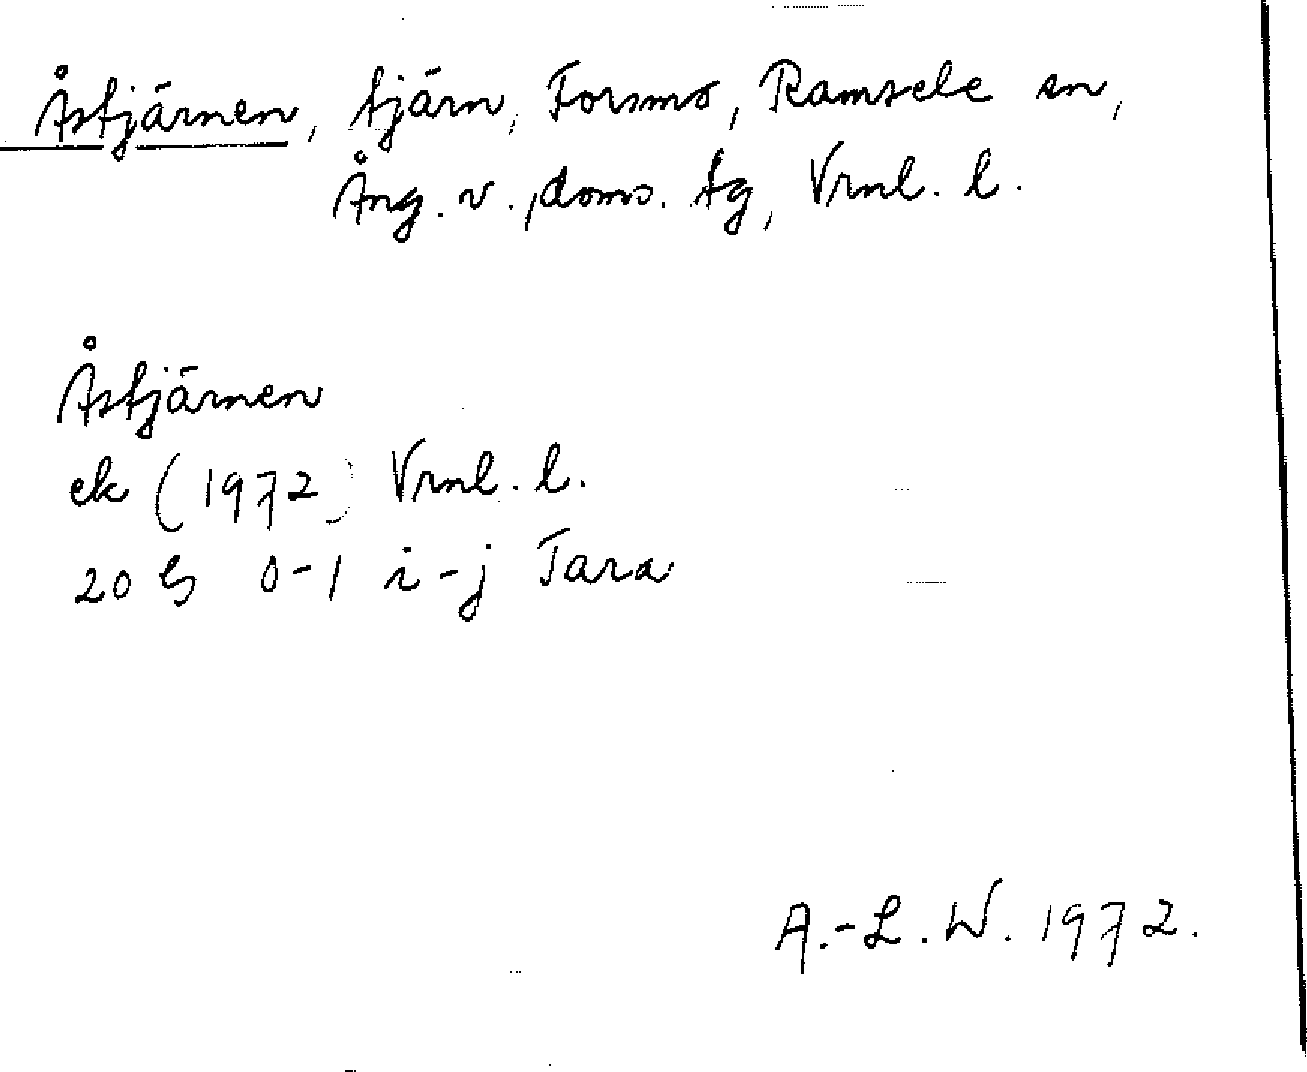 Åstjärnen, tjärn, Forsmo, Ramsele sn,
Ång. v., doms. tg, Vrml. l.
Åstjärnen
ek (1972) Vrml. l.
20 G 0-1 i-j Tara
A.-L. W. 1972.